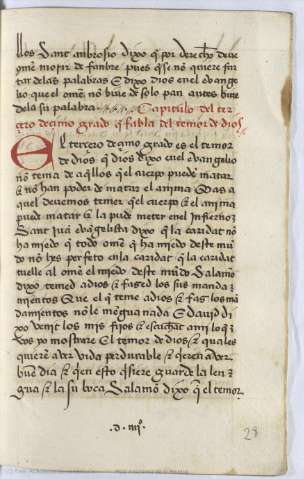 llos Sant ambrosio dixo q̃ por derecho deue
ome morir de fanbre pues q̃ se no quiere fin
tar delas palabras E dixo dios en el euange
lio que el ome no biue de solo pan antes biue
dela su palabra Capitulo del ter
çero deçimo grado q̃ fabla del temor de dios
El terçero deçimo grado es el temor
de dios q̃ dios dixo en el euangelio
nõ tema de aq̃llos q̃ el cuerpo puede matar
⁊ nõ han poder de matar el anima Mas a
quel deuemos temer q̃ el cuerpo ⁊ el anima
puede matar ⁊ la puede meter en el infierno ⁊
Sant iuã euãgelista dixo q̃ la caridat nõ
ha miedo q̃ todo ome q̃ ha miedo deste mũ
do nõ es perfeto en la caridat q̃ la caridat
tuelle al ome el miedo deste mũdo Salamõ
dixo temed adios ⁊ fazed los sus manda
mientos Que el q̃ teme adios ⁊ faze los mã
damientos nõ le mengua nada E dauid di
xo venit los mis fijos ⁊ escuchat ami lo q̃
vos yo mostrare El temor de dios ⁊ quales
quierẽ aver vida perdurable ⁊ q̃eren aver
buẽ dia ⁊ q̃en esto q̃siere guarde la len
gua ⁊ la su boca Salamõ dixo q̃ el temor
.d. iiijº.
28